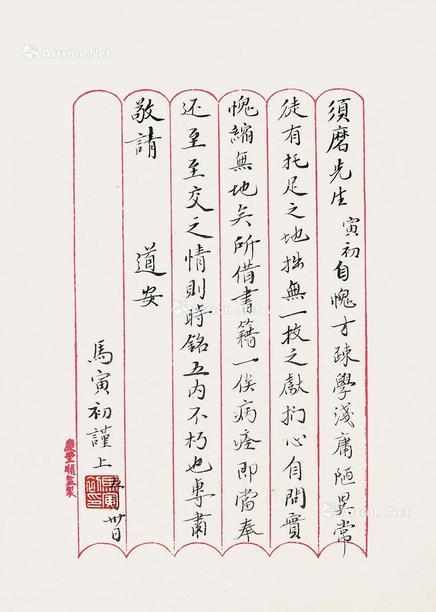 須磨先生寅初自愧才疎學淺庸陋異常
徒有托足之地拙無一枝之獻捫心自問實
愧縮無地矣所借書籍一俟病痊即當奉
还至至交之情則時銘五內不朽也專肅
敬請
道安
馬寅初謹上
卅日
慶豐順監製
Artron.Net